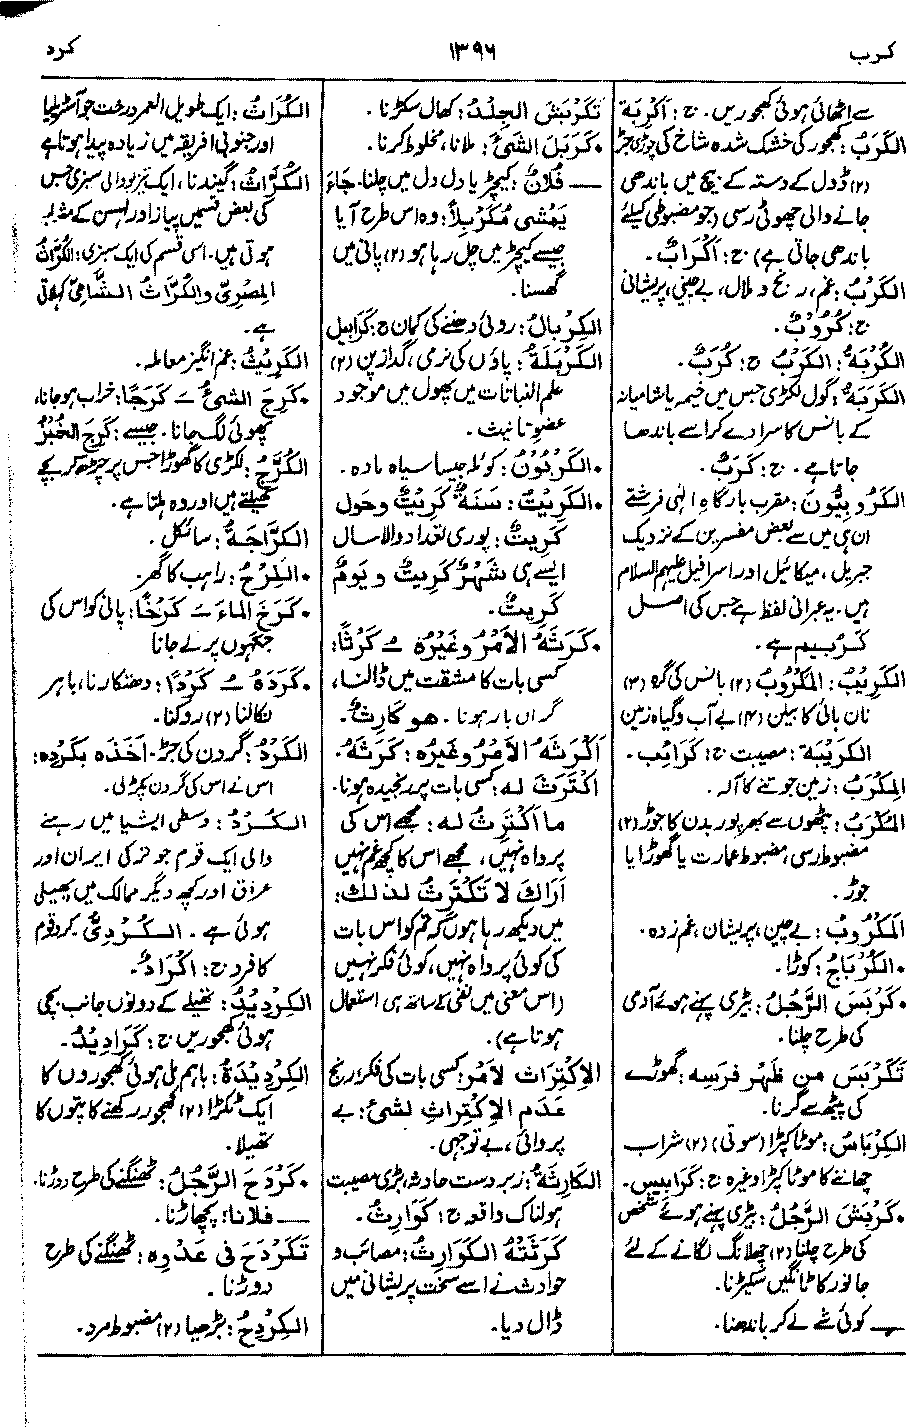 کرب
۱۳۹۶
کرد
سے اٹھائی ہوئی کھجوریں۔ ج: اَکْرِبَة
الکَرَبُ: کھجور کی خشک شدہ شاخ کی چوڑی جڑ
(۲) ڈول کے دستہ کے بیچ میں باندھی
جانے والی چھوٹی رسی (جو مضبوطی کیلئے
باندھی جاتی ہے) ج: اَکْرَابٌ۔
الکَرْبُ: غم، رنج و ملال، بے چینی، پریشانی
ج: کُرُوْبٌ۔
الکُرْبَةُ: الکَرْبُ ج: کُرَبٌ۔
الکَرَبَةُ: گول لکڑی جس میں خیمہ یا شامیانہ
کے بانس کا سرا دے کر اسے باندھا
جاتا ہے۔ ج: کَرَبٌ۔
الکَرُوبِیُّونَ: مقرب بارگاہِ الٰہی فرشتے
ان ہی میں سے بعض مفسرین کے نزدیک
جبریل، میکائیل اور اسرافیل علیہم السلام
ہیں۔ یہ عبرانی لفظ ہے جس کی اصل
کَرُبِیم ہے۔
الکَرِیْبُ: المَکْرُوْبُ (۲) بانس کی گرہ (۳)
نان بائی کا بیلن (۴) بے آب و گیاہ زمین
الکَرِیْبَة: مصیبت ج: کَرَائِب۔
المِکْرَبُ: زمین جوتنے کا آلہ۔
المُکْرَبُ: پٹھوں سے بھرپور بدن کا جوڑ (۲)
مضبوط رسی، مضبوط عمارت یا گھوڑا یا
جوڑ۔
المَکْرُوبُ: بے چین، پریشان، غم زدہ۔
•الکُرْبَاجُ: کوڑا۔
•کَرْبَسَ الرَّجُلُ: بیڑی پہنے ہوئے آدمی
کی طرح چلنا۔
تَکَرْبَسَ مِن ظَهْرِ فَرَسِه: گھوڑے
کی پیٹھ سے گرنا۔
الکِرْبَاسُ: موٹا کپڑا (سوتی) (۲) شراب
چھاننے کا موٹا کپڑا وغیرہ ج: کَرَابِیس۔
•کَرْبَشَ الرَّجُلُ: بیڑی پہنے ہوئے شخص
کی طرح چلنا (۲) چھلانگ لگانے کے لئے
جانور کا ٹانگیں سکیڑنا۔
— کوئی شے لے کر باندھنا۔
تَکَرْبَشَ الجِلْدُ: کھال سکڑنا۔
•کَرْبَلَ الشَّیْءَ: ملانا، مخلوط کرنا۔
— فُلَانٌ: کیچڑ یا دل دل میں چلنا۔ جَاءَ
یَمْشِی مُکَرْبِلاً: وہ اس طرح آیا
جیسے کیچڑ میں چل رہا ہو (۲) پانی میں
گھسنا۔
الکِرْبَالُ: روئی دھننے کی کمان ج: کَرَابِیل
الکَرْبَلَةُ: پاؤں کی نرمی، گدازپن (۲)
علم النباتات میں پھول میں موجود
عضو تانیث۔
•الکَرْبُونُ: کوئلہ جیسا سیاہ مادہ۔
•الکَرِیْتُ: سَنَةٌ کَرِیْتٌ وحَولٌ
کَرِیتٌ: پوری تعداد والا سال
ایسے ہی شَهْرٌ کَرِیتٌ و یَومٌ
کَرِیتٌ۔
•کَرَثَهُ الاَمْرُ وغَیْرُهُ ـُ کَرْثًا:
کسی بات کا مشقت میں ڈالنا،
گراں بار ہونا۔ هو کَارِثٌ۔
اَکْرَثَهُ الاَمْرُ وغیرُه: کَرَثَهُ۔
اکْتَرَثَ لَه: کسی بات پر رنجیدہ ہونا۔
مَا اکْتَرَثَ لَه: مجھے اس کی
پرواہ نہیں، مجھے اس کا کچھ غم نہیں
اَرَاكَ لَا تَکْتَرِثُ لذلك:
میں دیکھ رہا ہوں کہ تم کو اس بات
کی کوئی پرواہ نہیں، کوئی فکر نہیں
(اس معنی میں نفی کے ساتھ ہی استعمال
ہوتا ہے)۔
الاِکْتِرَاث لاَمْرٍ: کسی بات کی فکر، رنج
عَدَمُ الاِکْتِراثِ لشیءٍ: بے
پروائی، بے توجہی۔
الکَارِثَةُ: زبردست حادثہ، بڑی مصیبت
ہولناک واقعہ ج: کَوَارِثُ۔
کَرَثَتْهُ الکَوَارِثُ: مصائب و
حوادث نے اسے سخت پریشانی میں
ڈال دیا۔
الکُرَاثُ: ایک طویل العمر درخت جو آسٹریلیا
اور جنوبی افریقہ میں زیادہ پیدا ہوتا ہے
الکُرَّاثُ: گیندنا، ایک بو والی سبزی جس
کی بعض قسمیں پیاز اور لہسن کے مشابہ
ہوتی ہیں۔ اسی قسم کی ایک سبزی: الکُرَّاثُ
المِصْرِیُّ والکُرَّاثُ الشَّامِیُّ کہلاتی
ہے۔
الکَرِیْثُ: غم انگیز معاملہ۔
•کَرِجَ الشیءُ ـَ کَرَجًا: خراب ہوجانا،
پھوئی لگ جانا۔ جیسے: کَرِجَ الخُبْزُ
الکُرَّجُ: لکڑی کا گھوڑا جس پر چڑھ کر بچے
کھیلتے ہیں اور وہ ہلتا ہے۔
الکَرَّاجَةُ: سائکل۔
•الکِرْحُ: راہب کا گھر۔
•کَرَخَ المَاءَ ـَ کَرْخًا: پانی کو اس کی
جگہوں پر لے جانا
•کَرَدَهُ ـُ کَرْدًا: دھتکارنا، باہر
نکالنا (۲) روکنا۔
الکَرْدُ: گردن کی جڑ۔ اَخَذَه بکَرْدِه:
اس نے اس کی گردن پکڑ لی۔
الکُرْدُ: وسطی ایشیا میں رہنے
والی ایک قوم جو ترکی ایران اور
عراق اور کچھ دیگر ممالک میں پھیلی
ہوئی ہے۔ الکُرْدِیُّ کرد قوم
کا فرد ج: اکْرَادٌ۔
الکِرْدِیْدُ: تھیلے کے دونوں جانب بچی
ہوئی کھجوریں ج: کَرَادِیْدُ۔
الکِرْدِیْدَةُ: باہم ملی ہوئی کھجوروں کا
ایک ٹکڑا (۲) کھجور رکھنے کا پتوں کا
تھیلا۔
•کَرْدَحَ الرَّجُلُ: ٹھنگنے کی طرح دوڑنا۔
— فلانا: پچھاڑنا۔
تَکَرْدَحَ فی عَدْوِه: ٹھنگنے کی طرح
دوڑنا۔
الکِرْدِحُ: بڑھیا (۲) مضبوط مرد۔